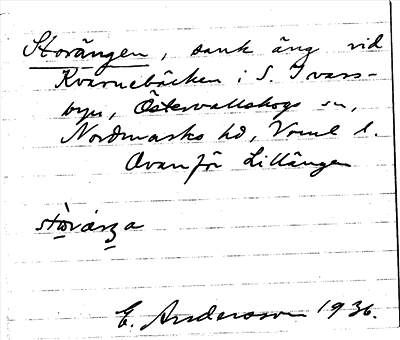 Storängen, sank äng vid
Kvarnebäcken i S. Ivars-
byn, Östervallskogs sn,
Nordmarks hd, Verml l.
Ovanför Lillängen
E. Andersson 1936.